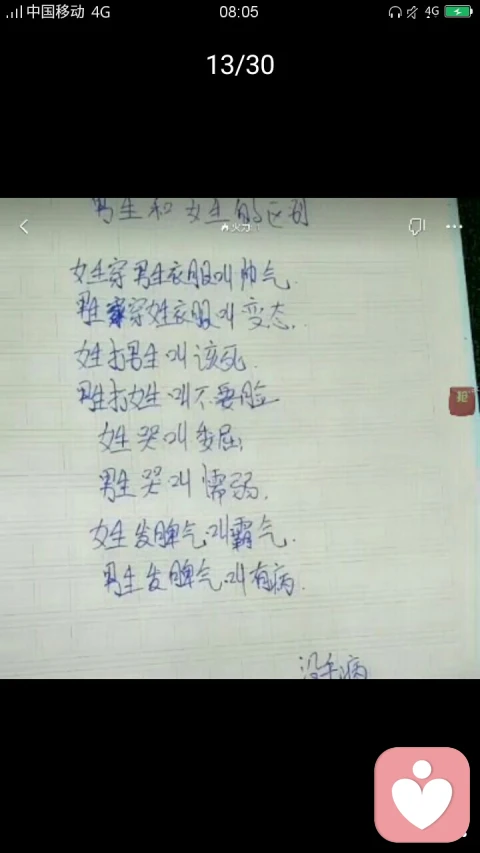 中国移动 4G 08:05 4G
13/30
男生和女生的区别
女生穿男生衣服叫帅气.
男生穿女生衣服叫变态.
女生打男生叫该死.
男生打女生叫不要脸
女生哭叫委屈;
男生哭叫懦弱.
女生发脾气叫霸气.
男生发脾气叫有病.
没毛病